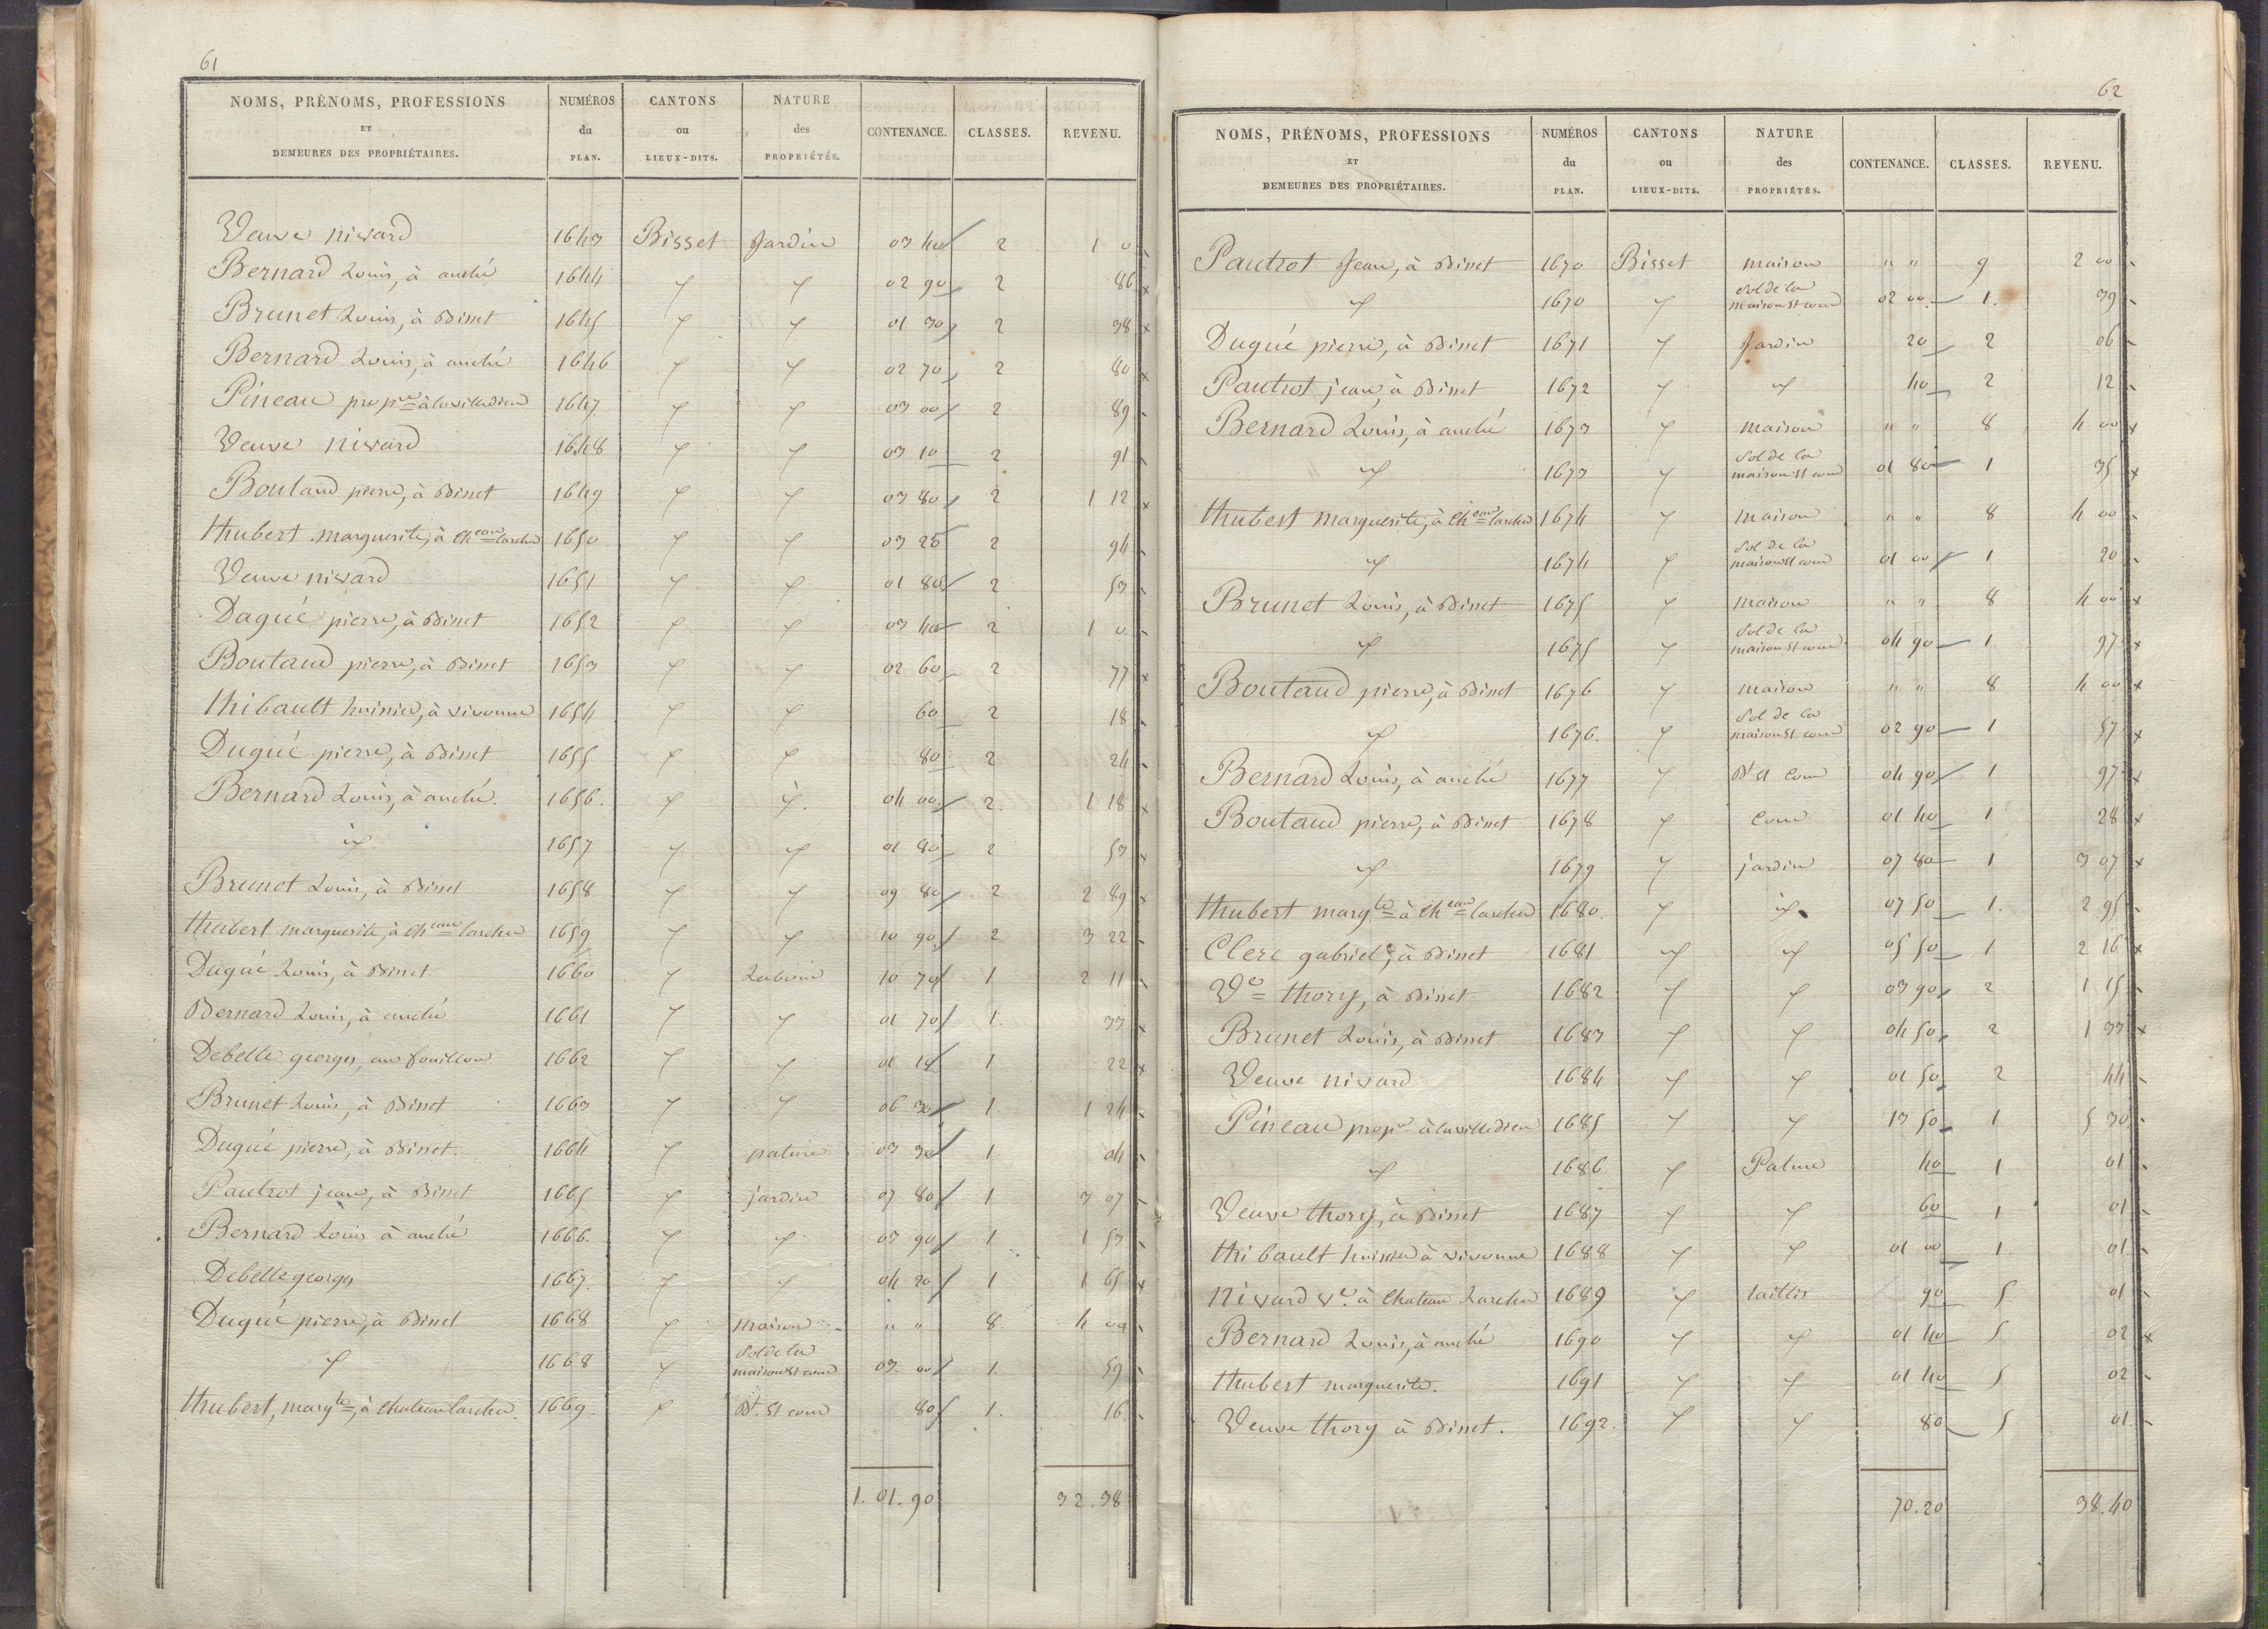 61
NOMS, PRÉNOMS, PROFESSIONS ET DEMEURES DES PROPRIÉTAIRES. NUMÉROS du PLAN. CANTONS ou LIEUX-DITS. NATURE des PROPRIÉTÉS. CONTENANCE. CLASSES. REVENU.
Veuve nivard 1643 Bisset Jardin 03 40 2 1 0
Bernard Louis, à anché 1644 " " 02 90 2 86
Brunet Louis, à Bisset 1645 " " 01 30 2 38
Bernard Louis, à anché 1646 " " 02 70 2 80
Pineau propre à lavilledieu 1647 " " 03 00 2 89
Veuve nivard 1648 " " 03 10 2 91
Boutaud pierre, à Bisset 1649 " " 03 80 2 1 12
thubert marguerite, à Cheau larcher 1650 " " 03 20 2 94
Veuve nivard 1651 " " 01 80 2 53
Dugué pierre, à Bisset 1652 " " 03 40 2 1 0
Boutaud pierre, à Bisset 1653 " " 02 60 2 77
thibault huissier, à vivonne 1654 " " 60 2 18
Dugué pierre, à Bisset 1655 " " 80 2 24
Bernard Louis, à anché. 1656. " " 04 00 2. 1 18
id. 1657 " " 01 80 2 53
Brunet Louis, à Bisset 1658 " " 09 80 2 2 89
thubert marguerite, à Cheau larcher 1659 " " 10 90 2 3 22
Dugué Louis, à Bisset 1660 " Labour 10 70 1 2 11
Bernard Louis, à anché 1661 " " 01 70 1. 33
Debelle georges, au fouillou 1662 " " 01 14 1 22
Brunet Louis, à Bisset 1663 " " 06 30 1 1 24
Dugué pierre, à Bisset. 1664 " pature 03 30 1 04
Pautrot jean, à Bisset 1665 " jardin 07 80 1 3 07
Bernard Louis à anché 1666. " " 03 90 1 1 53
Debelle georges 1667. " " 04 20 1 1 65
Dugué pierre, à Bisset 1668 " maison " " 8. 4 00
" 1668 " Sol de la maison et cour 03 00 1. 59
thubert, margte, à Chateau larcher. 1669. " Bt. et cour 80 1. 16
1. 01. 90 32. 38
62
NOMS, PRÉNOMS, PROFESSIONS ET DEMEURES DES PROPRIÉTAIRES. NUMÉROS du PLAN. CANTONS ou LIEUX-DITS. NATURE des PROPRIÉTÉS. CONTENANCE. CLASSES. REVENU.
Pautrot Jean, à Bisset 1670 Bisset maison " " 9 2 00
" 1670 " Sol de la maison et cour 02 00 1. 39
Dugué pierre, à Bisset 1671 " Jardin 20 2 06
Pautrot jean, à Bisset 1672 " " 40 2 12
Bernard Louis, à anché 1673 " maison " " 8 4 00
" 1673 " Sol de la maison et cour 01 80 1 35
thubert marguerite, à Cheau larcher 1674 " maison " " 8 4 00
" 1674 " Sol de la maison et cour 01 00 1 20
Brunet Louis, à Bisset 1675 " maison " " 8 4 00
" 1675 " Sol de la maison et cour 04 90 1 97
Boutaud pierre, à Bisset 1676 " maison " " 8 4 00
" 1676. " Sol de la maison et cour 02 90 1 57
Bernard Louis, à anché 1677 " Bt et Cour 04 90 1 97
Boutaud pierre, à Bisset 1678 " Cour 01 40 1 28
" 1679 " jardin 07 80 1 3 07
thubert margte à Cheau larcher 1680. " id. 07 50 1. 2 95
Clerc gabriel, à Bisset 1681 " " 05 50 1 2 16
Ve thory, à Bisset 1682 " " 03 90 2 1 15
Brunet Louis, à Bisset 1683 " " 04 50 2 1 33
Veuve nivard 1684 " " 01 50 2 44
Pineau propre à lavilledieu 1685 " " 13 50 1 5 30
" 1686 " Pature 40 1 01
Veuve thory, à Bisset 1687 " " 60 1 01
thibault huissier à vivonne 1688 " " 01 00 1 01
Nivard ve. à Chateau Larcher 1689 " taillis 90 5 01
Bernard Louis, à anché 1690 " " 01 40 5 02
thubert marguerite. 1691 " " 01 40 5 02
Veuve thory à Bisset. 1692. " " 80 5 01
70. 20 38. 40